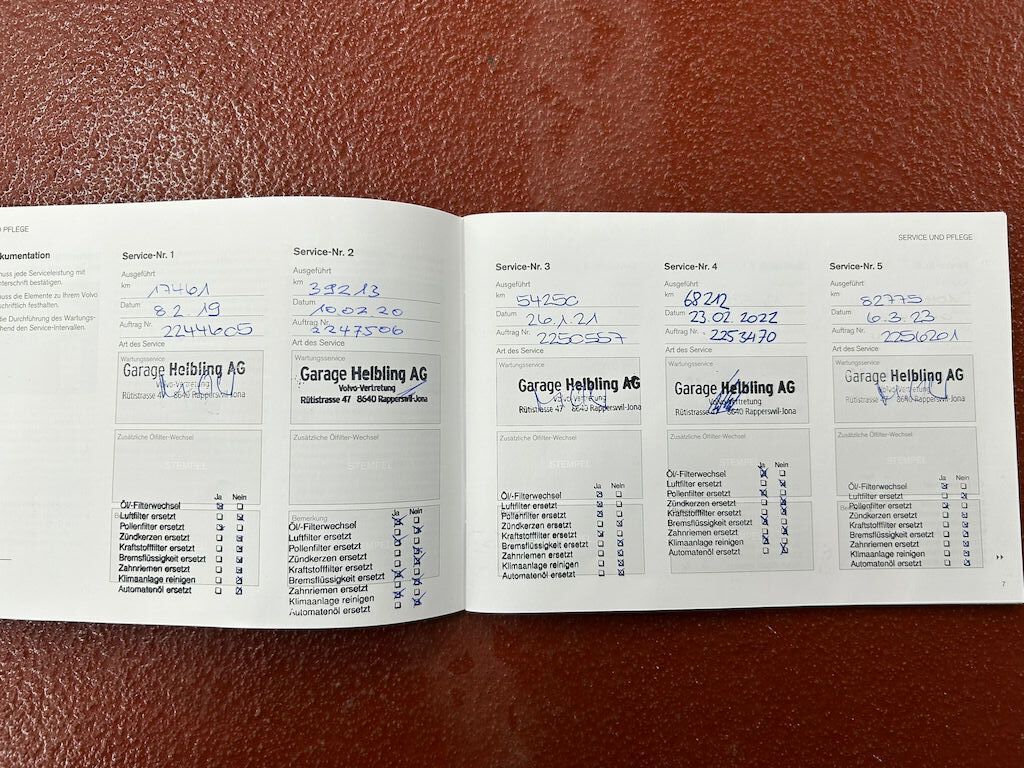 D PFLEGE
kumentation
uss jede Serviceleistung mit
nterschrift bestätigen.
uss die Elemente zu Ihrem Volvo
schriftlich festhalten.
die Durchführung des Wartungs-
hend den Service-Intervallen.
Service-Nr. 1
Ausgeführt
km 17461
Datum 8.2.19
Auftrag Nr. 2244605
Art des Service
Wartungsservice
Garage Helbling AG
Volvo-Vertretung
Rütistrasse 47 8640 Rapperswil-Jona
Zusätzliche Ölfilter-Wechsel
STEMPEL
Ja Nein
Öl/-Filterwechsel
Luftfilter ersetzt
Pollenfilter ersetzt
Zündkerzen ersetzt
Kraftstofffilter ersetzt
Bremsflüssigkeit ersetzt
Zahnriemen ersetzt
Klimaanlage reinigen
Automatenöl ersetzt
Service-Nr. 2
Ausgeführt
km 39213
Datum 10.02.20
Auftrag Nr. 2247506
Art des Service
Wartungsservice
Garage Helbling AG
Volvo-Vertretung
Rütistrasse 47 8640 Rapperswil-Jona
Zusätzliche Ölfilter-Wechsel
STEMPEL
Bemerkung
Ja Nein
Öl/-Filterwechsel
Luftfilter ersetzt
Pollenfilter ersetzt
Zündkerzen ersetzt
Kraftstofffilter ersetzt
Bremsflüssigkeit ersetzt
Zahnriemen ersetzt
Klimaanlage reinigen
Automatenöl ersetzt
SERVICE UND PFLEGE
Service-Nr. 3
Ausgeführt
km 54250
Datum 26.1.21
Auftrag Nr. 2250557
Art des Service
Wartungsservice
Garage Helbling AG
Volvo-Vertretung
Rütistrasse 47 8640 Rapperswil-Jona
Zusätzliche Ölfilter-Wechsel
STEMPEL
Ja Nein
Öl/-Filterwechsel
Luftfilter ersetzt
Pollenfilter ersetzt
Zündkerzen ersetzt
Kraftstofffilter ersetzt
Bremsflüssigkeit ersetzt
Zahnriemen ersetzt
Klimaanlage reinigen
Automatenöl ersetzt
Service-Nr. 4
Ausgeführt
km 68212
Datum 23.02.2022
Auftrag Nr. 2253470
Art des Service
Wartungsservice
Garage Helbling AG
Volvo-Vertretung
Rütistrasse 47 8640 Rapperswil-Jona
Zusätzliche Ölfilter-Wechsel
Ja Nein
Öl/-Filterwechsel
Luftfilter ersetzt
Pollenfilter ersetzt
Zündkerzen ersetzt
Kraftstofffilter ersetzt
Bremsflüssigkeit ersetzt
Zahnriemen ersetzt
Klimaanlage reinigen
Automatenöl ersetzt
Service-Nr. 5
Ausgeführt
km 82775
Datum 6.3.23
Auftrag Nr. 2256201
Art des Service
Wartungsservice
Garage Helbling AG
Volvo-Vertretung
Rütistrasse 47 8640 Rapperswil-Jona
Zusätzliche Ölfilter-Wechsel
STEMPEL
Ja Nein
Öl/-Filterwechsel
Luftfilter ersetzt
Pollenfilter ersetzt
Zündkerzen ersetzt
Kraftstofffilter ersetzt
Bremsflüssigkeit ersetzt
Zahnriemen ersetzt
Klimaanlage reinigen
Automatenöl ersetzt
7